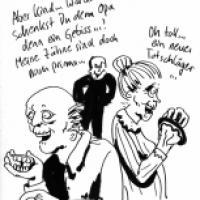 Aber Kind... Warum
schenkst Du dem Opa
denn ein Gebiss...!
Meine Zähne sind doch
noch prima...
Oh toll...
ein neuer
Totschläger
...